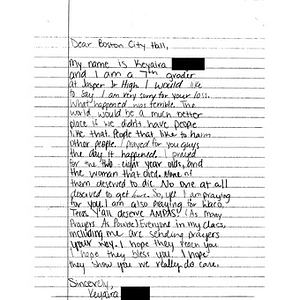 Dear Boston City Hall,
My name is Keyaira
and I am a 7th grader
at Jasper Jr High. I would like
to say I am very sorry for your loss.
What happened was terrible. The
world would be a much better
place if we didn't have people
like that. People that like to harm
other people. I prayed for you guys
the day it happened. I prayed
for the two eight year olds, and
the woman that died. None of
them deserved to die. No one at all
deserved to get hurt. So, yes I am praying
for you. I am also praying for Waco,
Texas. Y'all deserve AMPAS! (As Many
Prayers As Possible) Everyone in my class,
including me are sending prayers
your way. I hope they reach you.
I hope they bless you. I hope
they show you we really do care.
Sincerely,
Keyaira